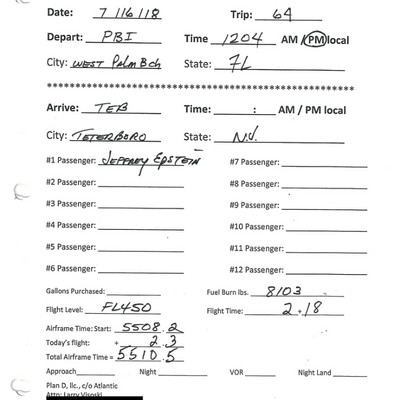 Date: 7/16/18 Trip: 64
Depart: PBI Time 1204 AM / PM local
City: WEST Palm Bch State: FL
************************************************
Arrive: TEB Time: : AM / PM local
City: TETERBORO State: N.J.
#1 Passenger: JEFFREY EPSTEIN #7 Passenger:
#2 Passenger: #8 Passenger:
#3 Passenger: #9 Passenger:
#4 Passenger: #10 Passenger:
#5 Passenger: #11 Passenger:
#6 Passenger: #12 Passenger:
Gallons Purchased: Fuel Burn lbs. 8103
Flight Level: FL450 Flight Time: 2+18
Airframe Time: Start: 5508.2
Today's flight: + 2.3
Total Airframe Time = 5510.5
Approach Night VOR Night Land
Plan D, llc., c/o Atlantic
Attn: Larry Visoski